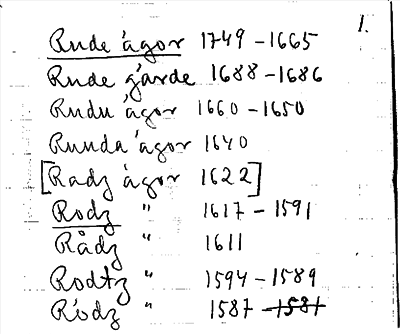 1.
Rude ågor 1749 - 1665
Rude gårde 1688 - 1686
Rudu ågor 1660 - 1650
Runda ågor 1640
[Radz ågor 1622]
Rodz " 1617 - 1591
Rådz " 1611
Rodtz " 1594 - 1589
Rodz " 1587 - 1581